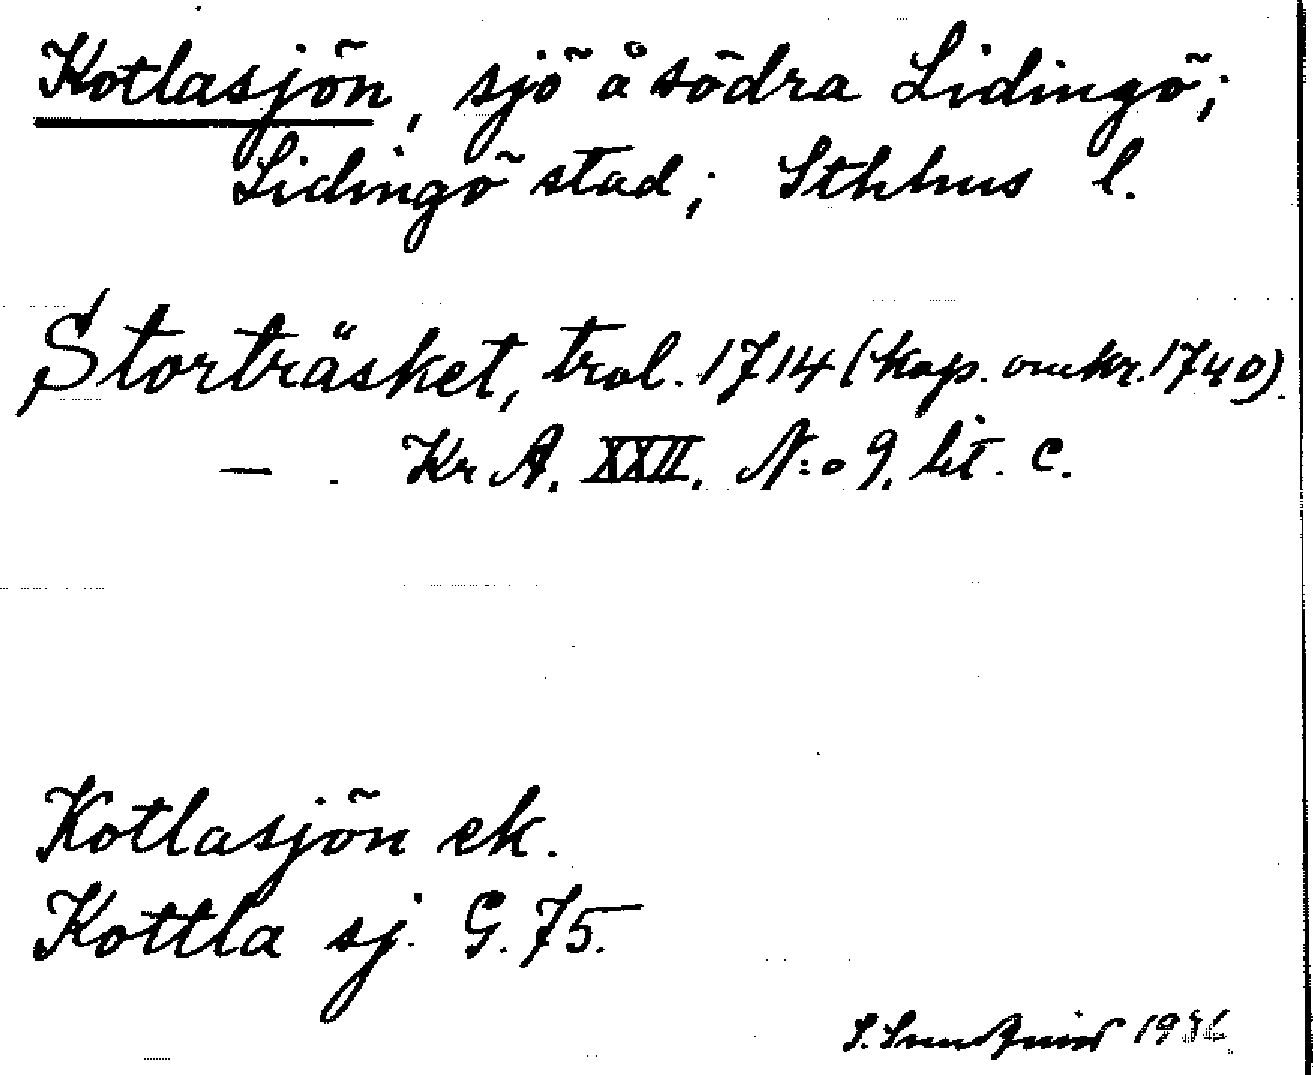 Kotlasjön, sjö å södra Lidingö;
Lidingö stad; Sthlms l.
Storträsket, trol. 1714 (kop. omkr. 1740).
— . Kr A. XXII. N:o 9. lit. c.
Kotlasjön ek.
Kottla sj. G. 75.
S.